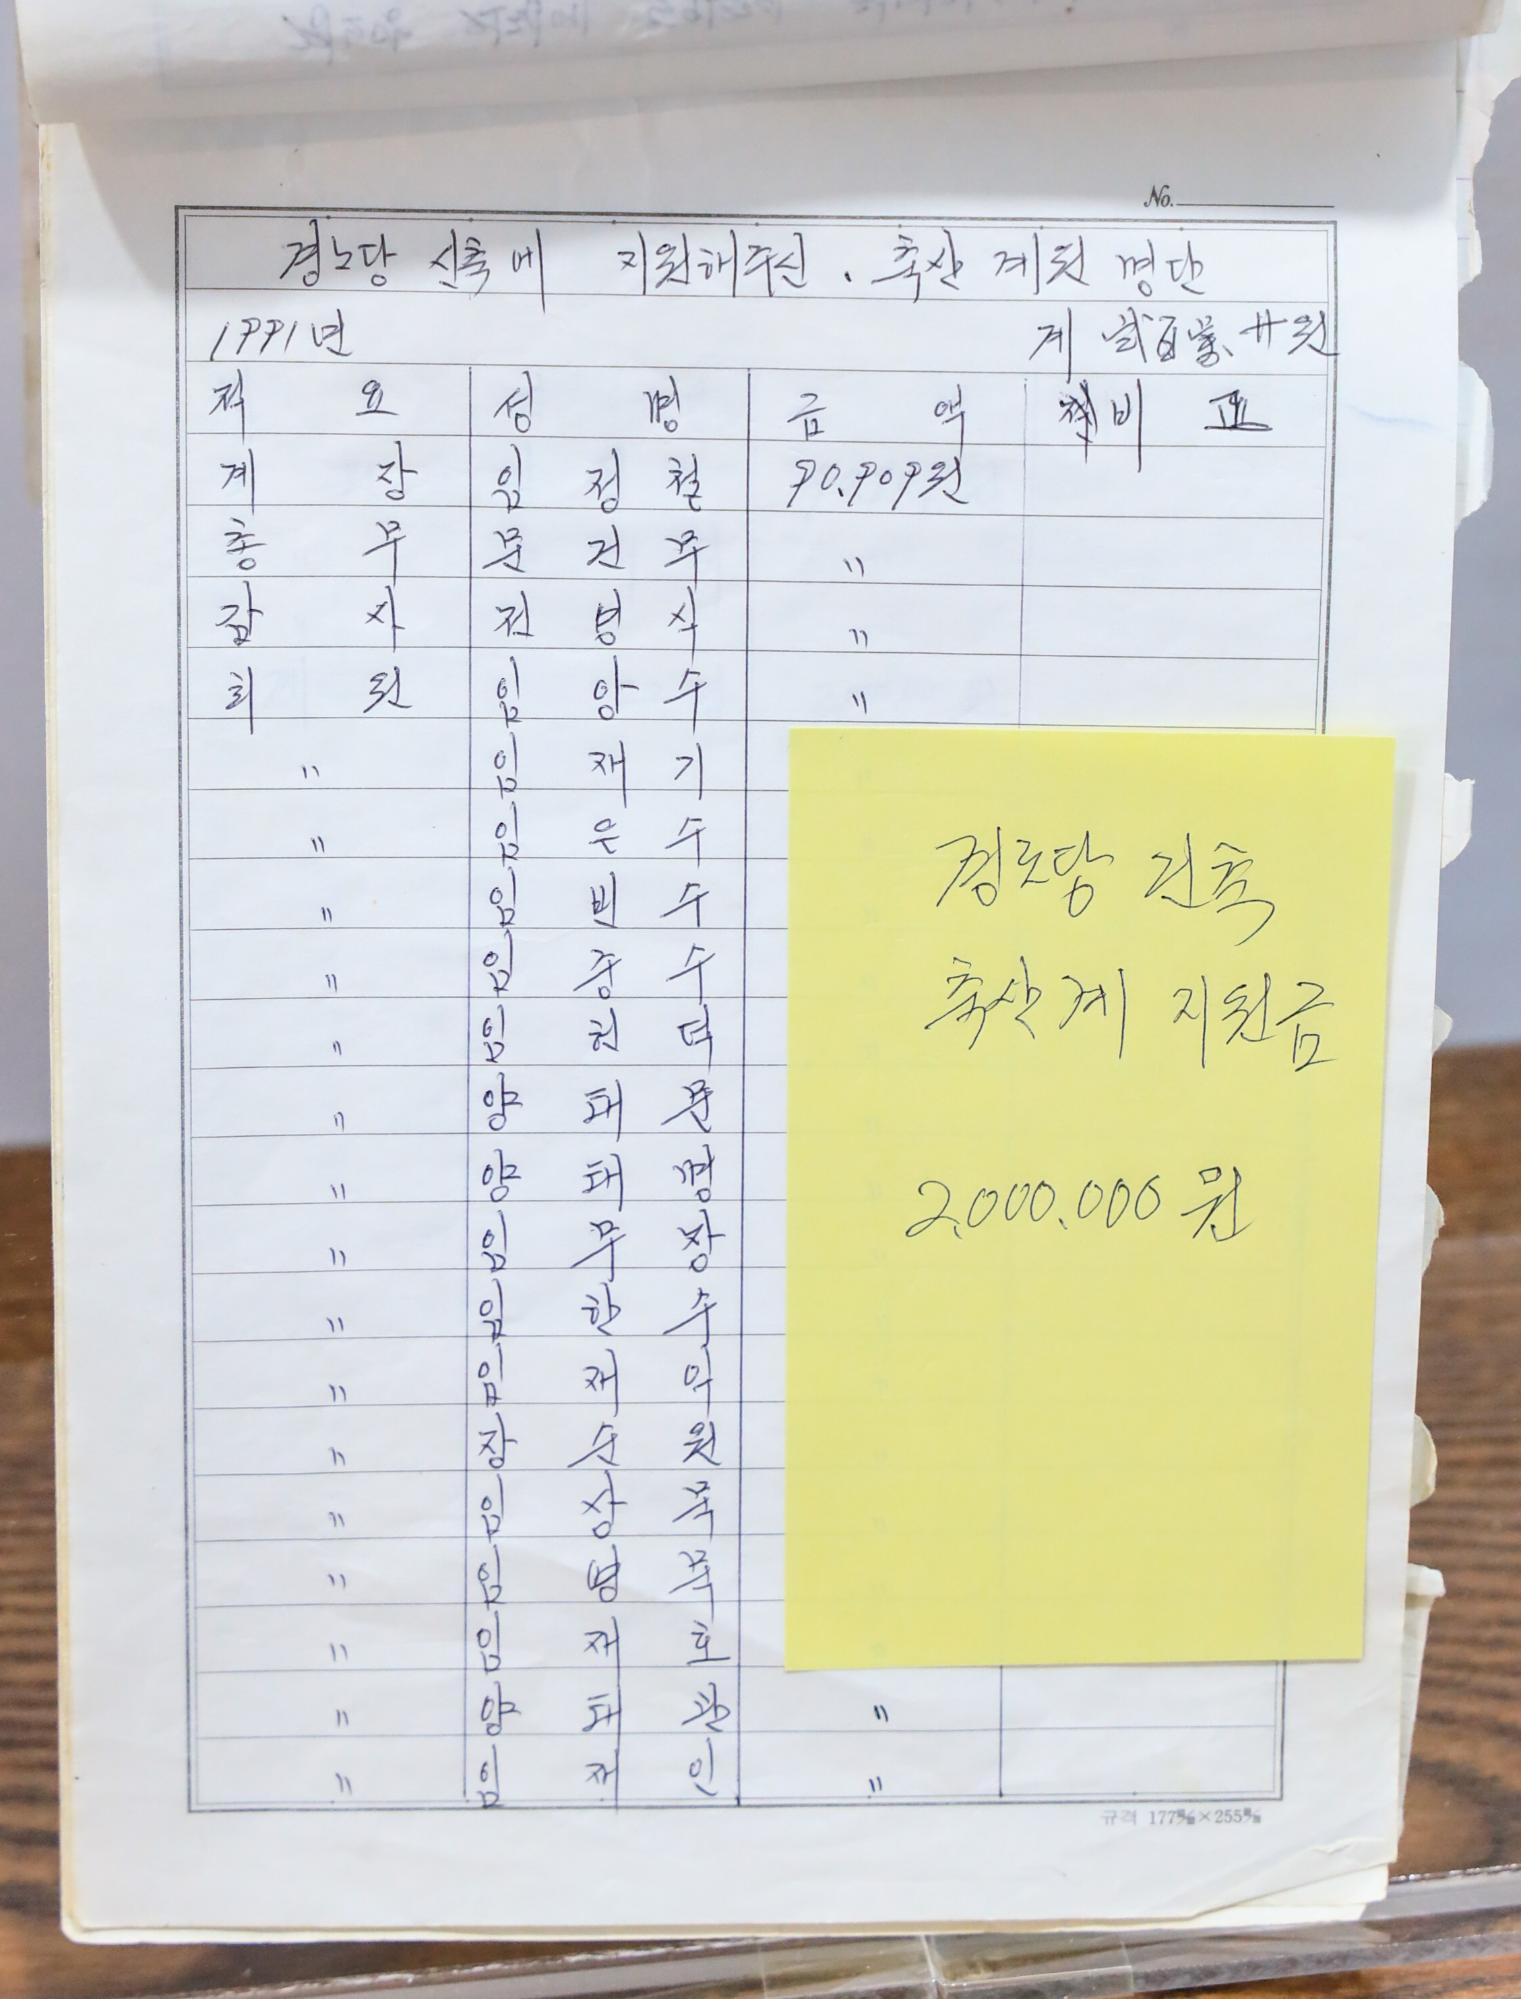 No.
경노당 신축에 지원해주신. 축산 계원 명단
1991년 계 弍百萬、廾원
적 요 성 명 금 액 비 고
계 장 임 정 철 90.909원
총 무 문 건 주 〃
감 사 전 병 식 〃
회 원 임 양 수 〃
〃 임 재 기
〃 임 우 수
〃 임 빈 수
〃 임 종 수
〃 임 헌 덕
〃 양 태 문
〃 양 태 명
〃 임 무 장
〃 임 한 수
〃 임 재 우
〃 장 수 원
〃 임 상 묵
〃 임 병 묵
〃 임 재 호
〃 양 태 분 〃
〃 임 재 인 〃
경로당 건축
축산계 지원금
2,000.000원
규격 177㎜×255㎜